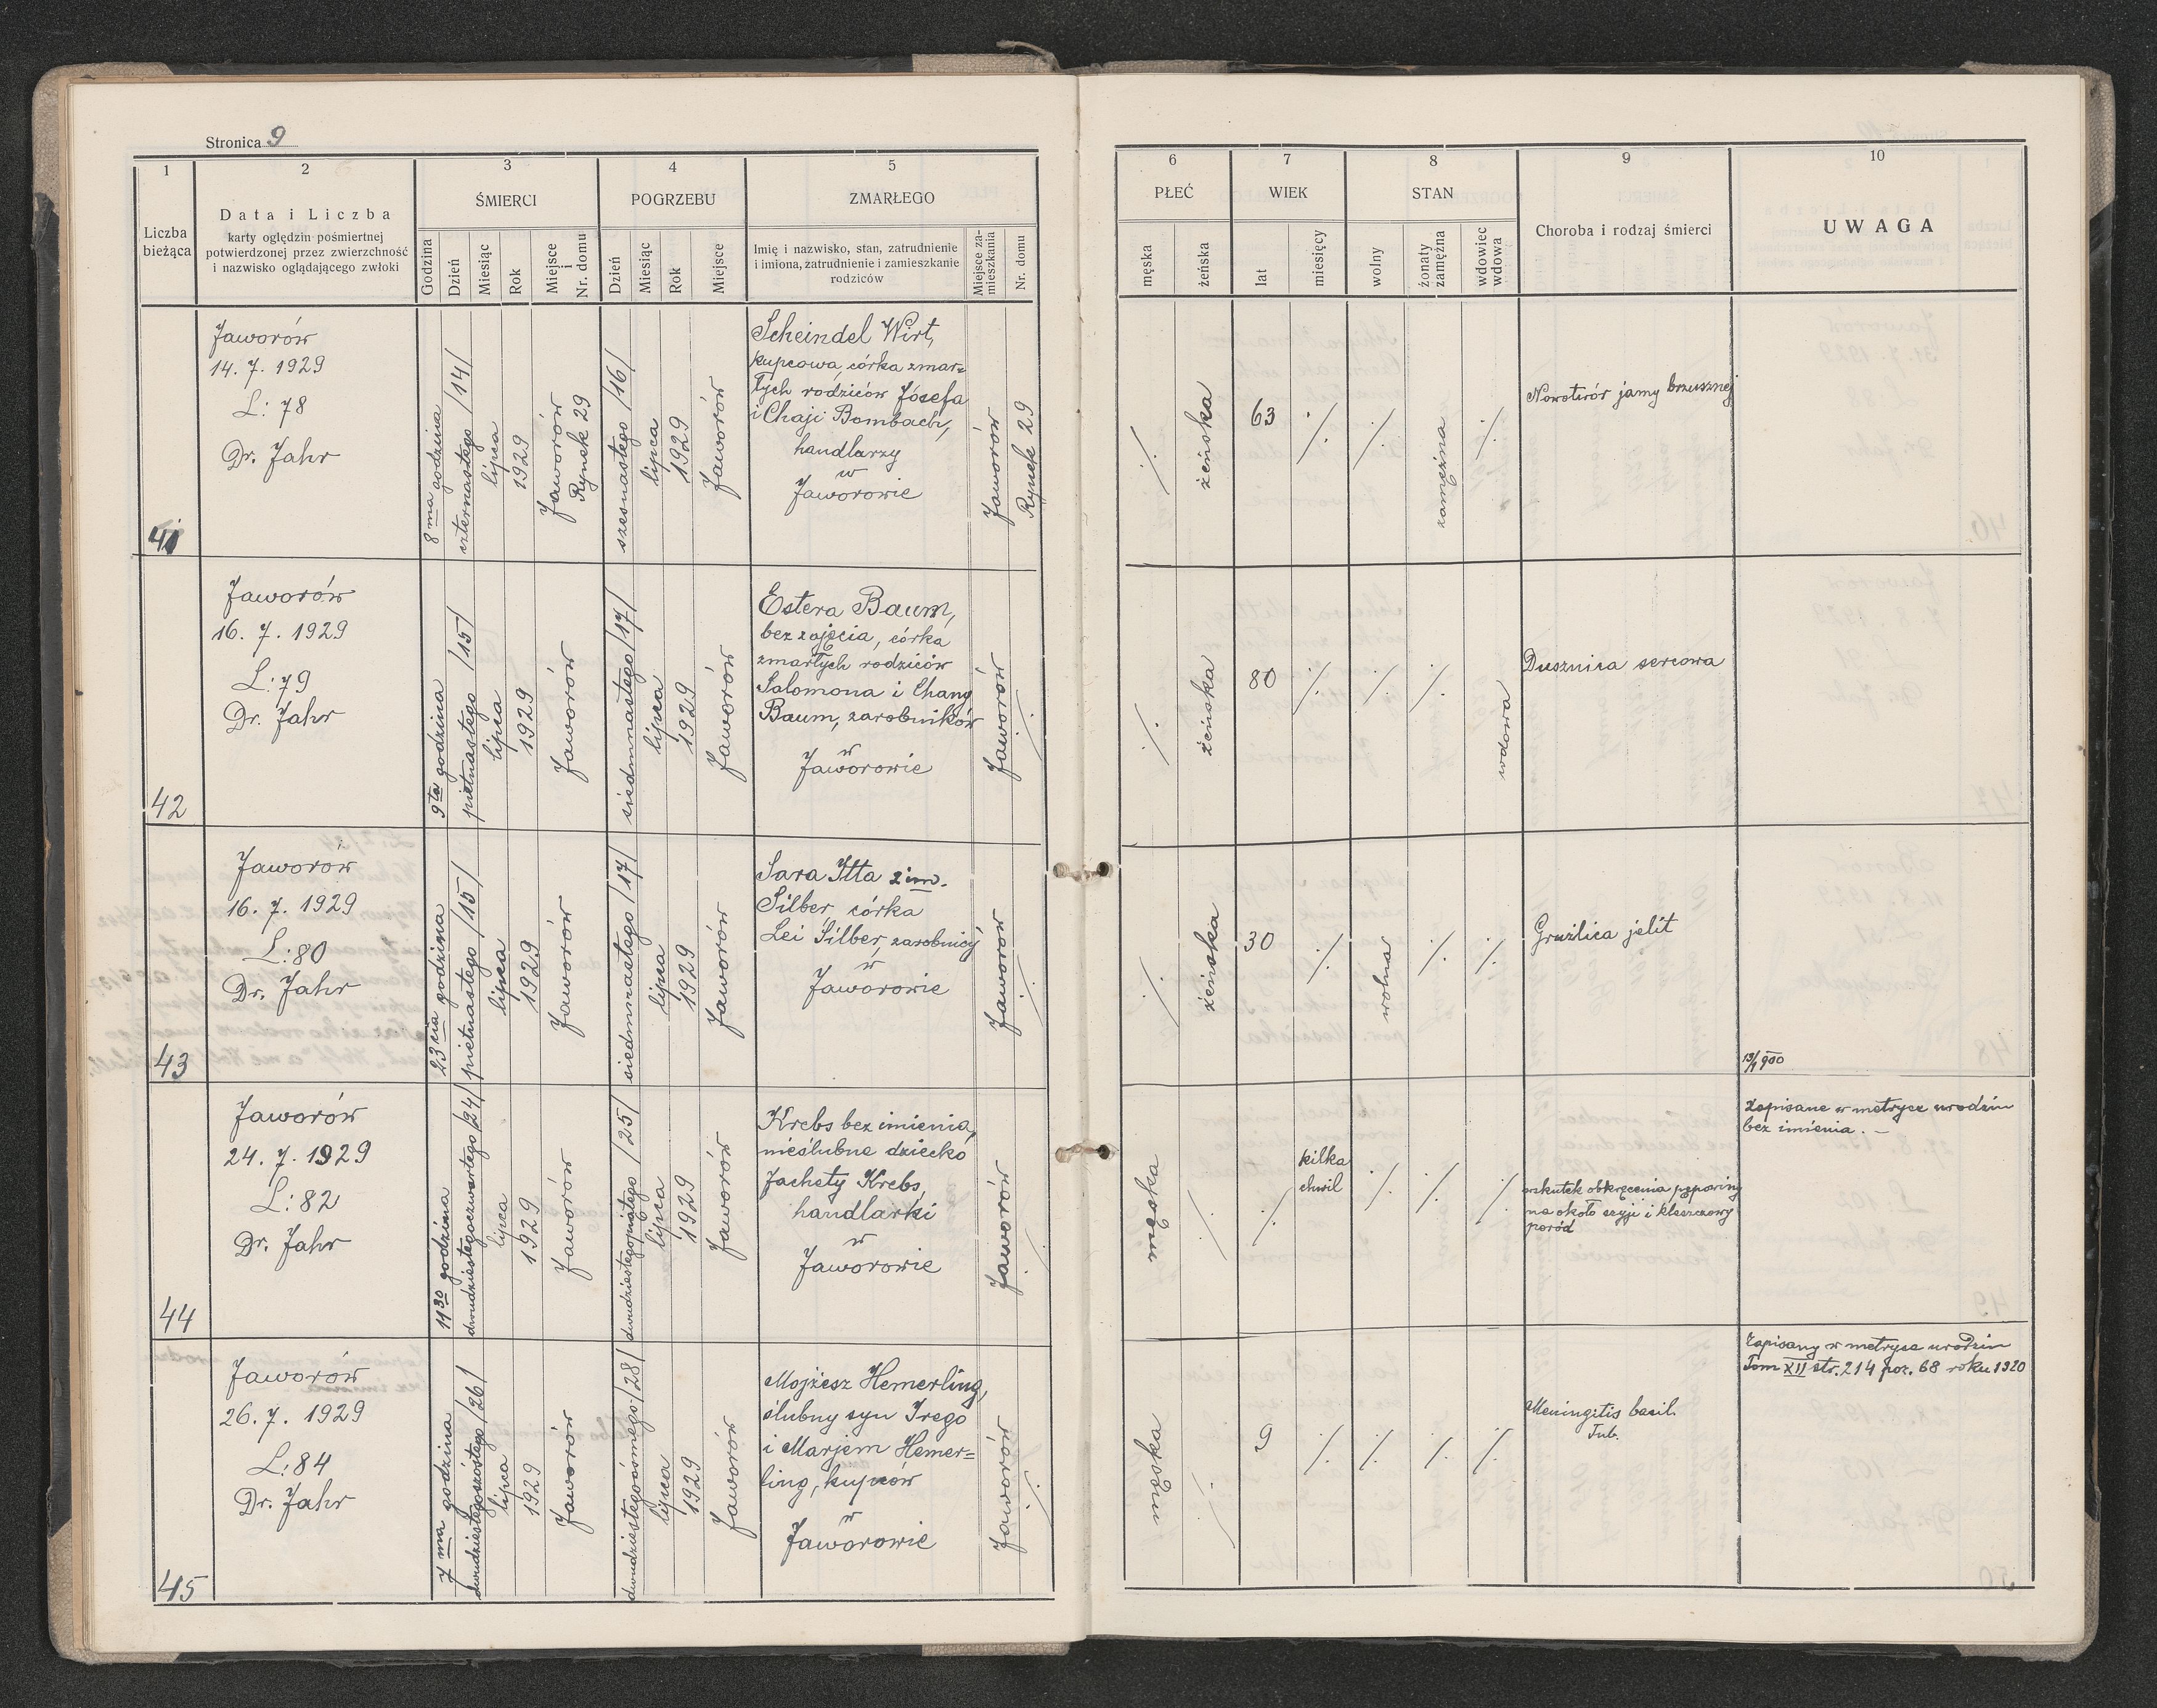 Stronica 9
1
2
3
4
5
6
7
8
9
10
Liczba
bieżąca
Data i Liczba
karty oględzin pośmiertnej
potwierdzonej przez zwierzchność
i nazwisko oglądającego zwłoki
ŚMIERCI
Godzina
Dzień
Miesiąc
Rok
Miejsce
i
Nr. domu
POGRZEBU
Dzień
Miesiąc
Rok
Miejsce
ZMARŁEGO
Imię i nazwisko, stan, zatrudnienie
i imiona, zatrudnienie i zamieszkanie
rodziców
Miejsce za-
mieszkania
Nr. domu
PŁEĆ
męska
żeńska
WIEK
lat
miesięcy
STAN
wolny
żonaty
zamężna
wdowiec
wdowa
Choroba i rodzaj śmierci
UWAGA
41
Jaworów
14. 7. 1929
L: 78
Dr. Jahr
8ma godzina
czternastego /14/
lipca
1929
Jaworów
Rynek 29
szesnastego /16/
lipca
1929
Jaworów
Scheindel Wirt,
kupcowa, córka zmar=
łych rodziców Józefa
i Chaji Bombach,
handlarzy
w
Jaworowie
Jaworów
Rynek 29
./.
żeńska
63
./.
./.
zamężna
./.
Nowotwór jamy brzusznej
42
Jaworów
16. 7. 1929
L: 79
Dr. Jahr
9ta godzina
pietnastego /15/
lipca
1929
Jaworów
siedmnastego /17/
lipca
1929
Jaworów
Estera Baum,
bez zajęcia, córka
zmarłych rodziców
Salomona i Chany
Baum, zarobników
w
Jaworowie
Jaworów
./.
./.
żeńska
80
./.
./.
./.
wdowa
Dusznica sercowa
43
Jaworów
16. 7. 1929
L: 80
Dr. Jahr
23cia godzina
pietnastego /15/
lipca
1929
Jaworów
siedmnastego /17/
lipca
1929
Jaworów
Sara Itta 2 im.
Silber córka
Lei Silber, zarobnicy
w
Jaworowie
Jaworów
./.
./.
żeńska
30
./.
wolna
./.
./.
Gruźlica jelit
44
Jaworów
24. 7. 1929
L: 82
Dr. Jahr
11 30 godzina
dwudziestegoczwartego /24/
lipca
1929
Jaworów
dwudziestegopiątego /25/
lipca
1929
Jaworów
Krebs bez imienia,
nieślubne dziecko
Jachety Krebs,
handlarki
w
Jaworowie
Jaworów
./.
męska
./.
./.
kilka
chwil
./.
./.
./.
wskutek obkręcenia pępowiny
na około szyji i kleszczowy
poród
Zapisane w metryce urodzin
bez imienia. —
45
Jaworów
26. 7. 1929
L: 84
Dr. Jahr
7ma godzina
dwudziestegoszóstego /26/
lipca
1929
Jaworów
dwudziestegoósmego /28/
lipca
1929
Jaworów
Mojżesz Hemerling,
ślubny syn Irego
i Marjem Hemer=
ling, kupców
w
Jaworowie
Jaworów
./.
męska
./.
9
./.
./.
./.
./.
Meningitis bacil.
Tub.
Zapisany w metryce urodzin
Tom XII str. 214 poz. 68 roku 1920